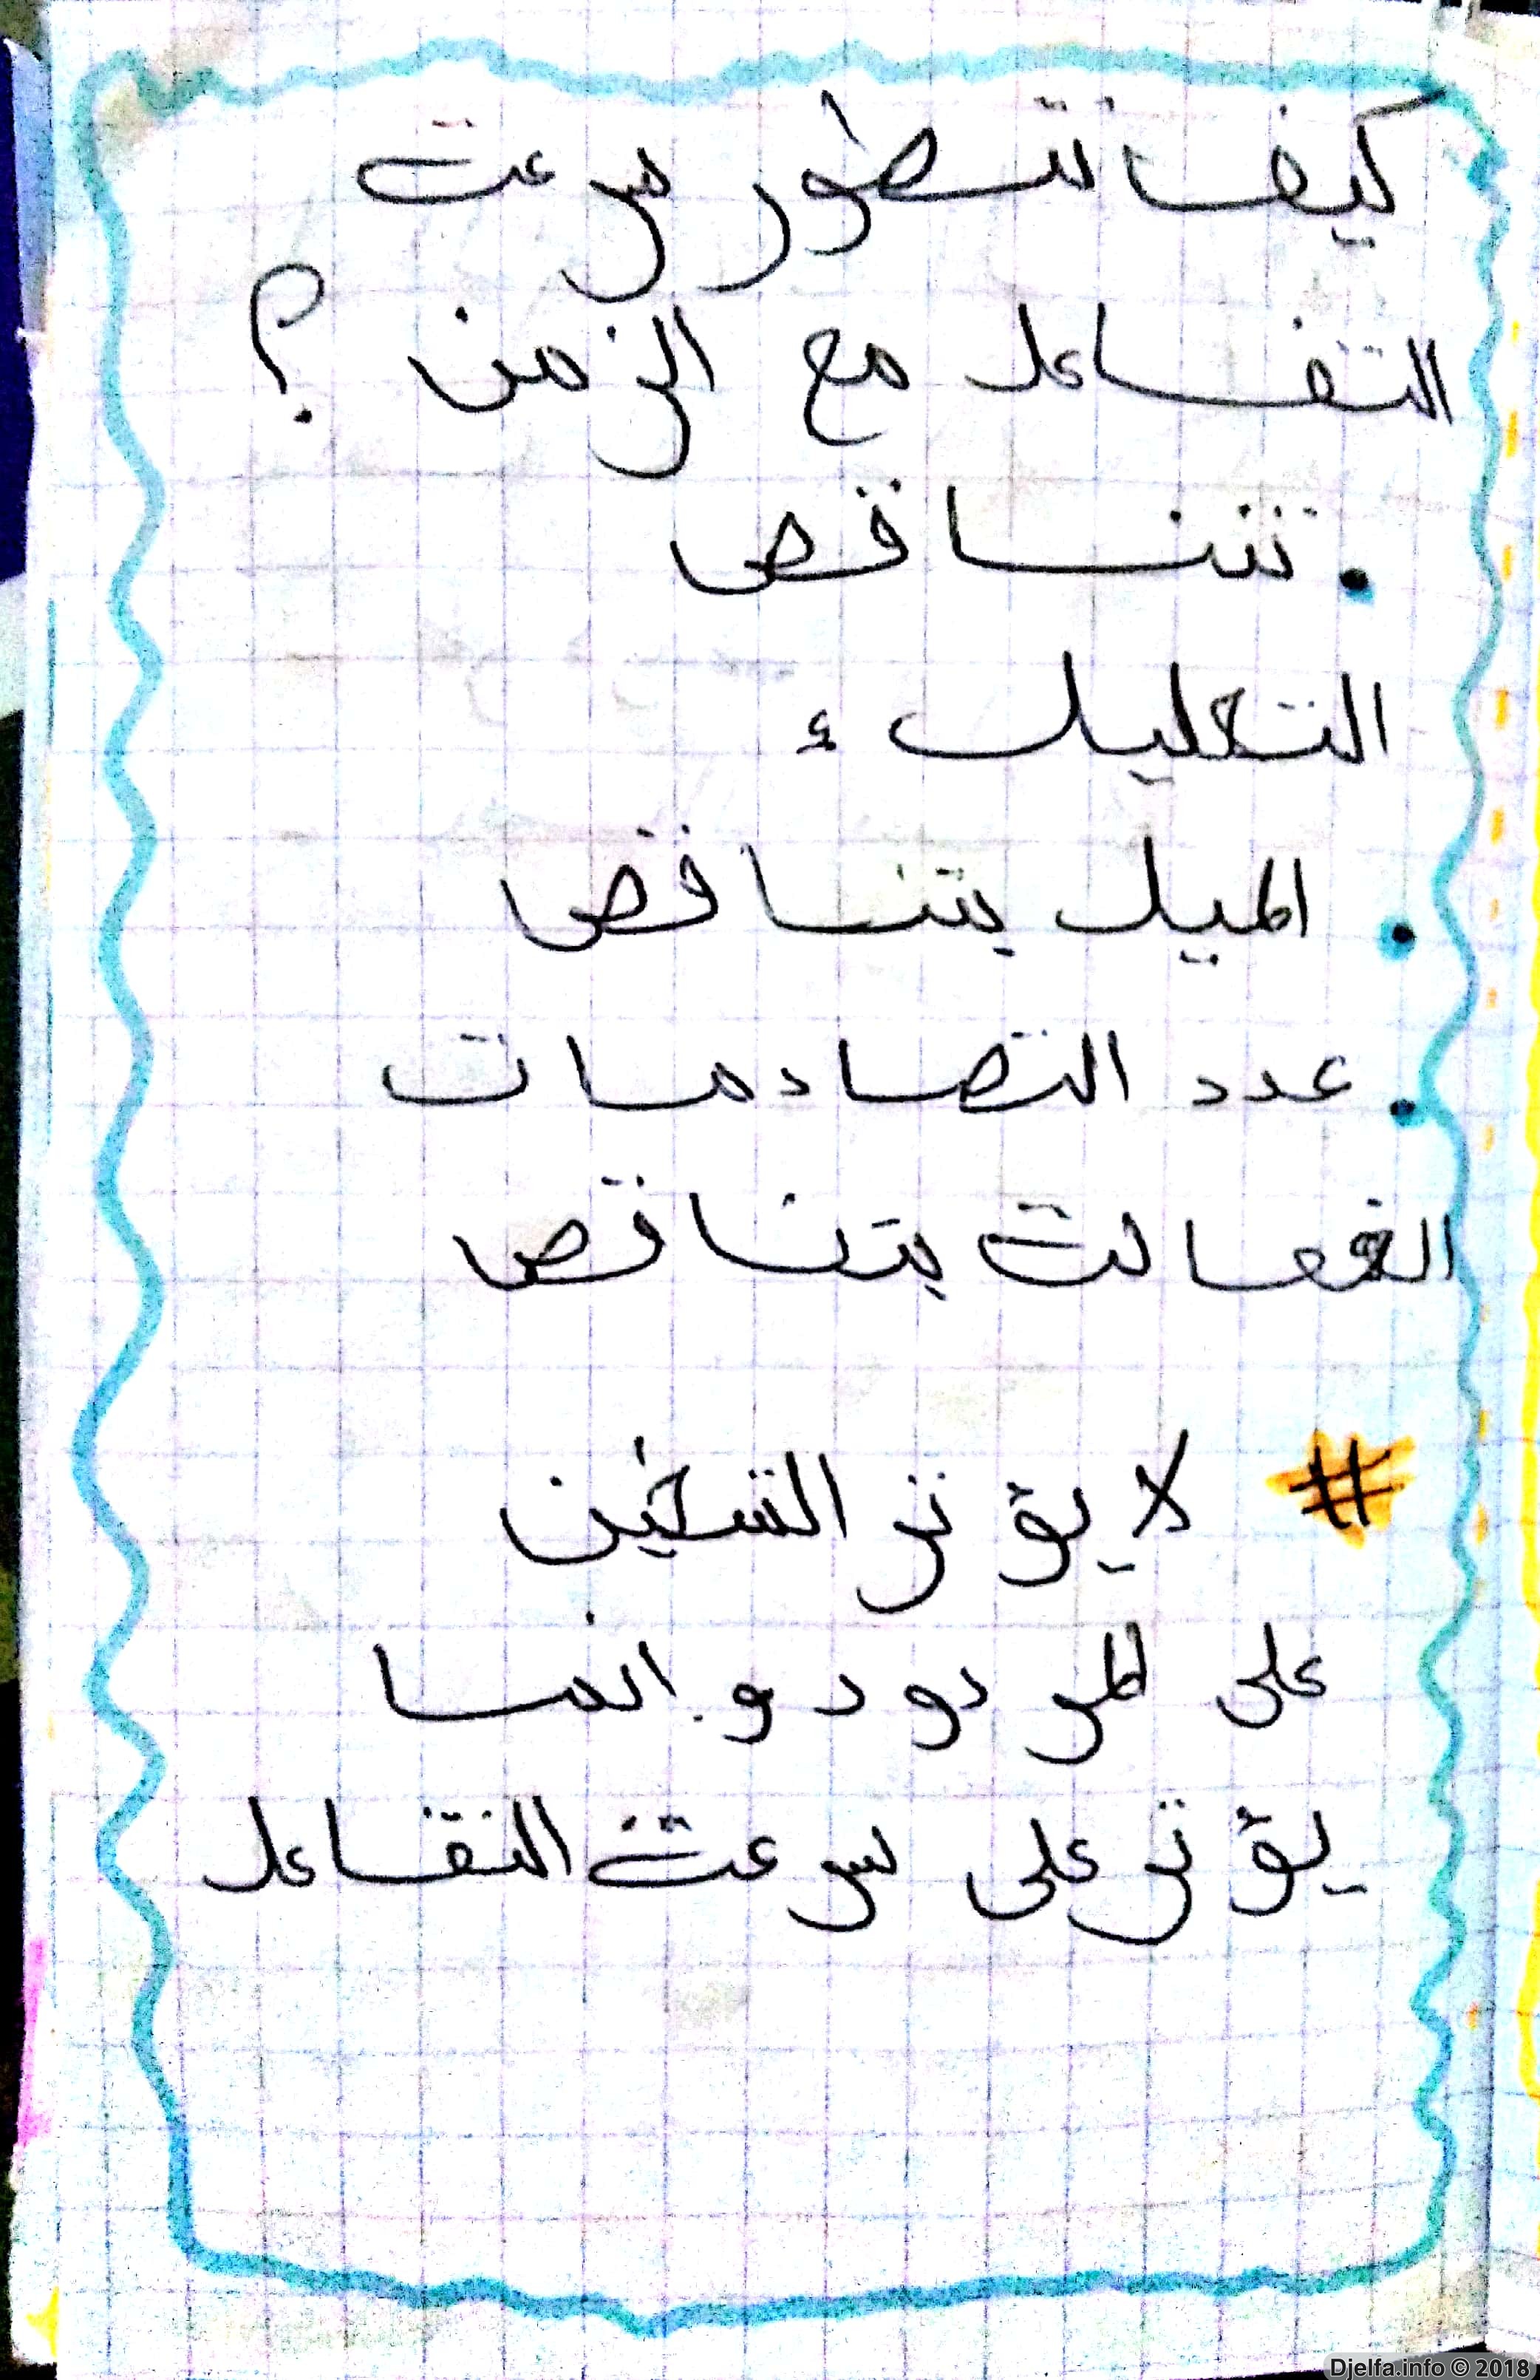 كيف تتطور سرعة
التفاعل مع الزمن ؟
. تتناقص
التعليل :
. الميل يتناقص
. عدد التصادمات
الفعالة يتناقص
# لا يؤثر التسخين
على المردود و انما
يؤثر على سرعة التفاعل
Djelfa.info © 2018